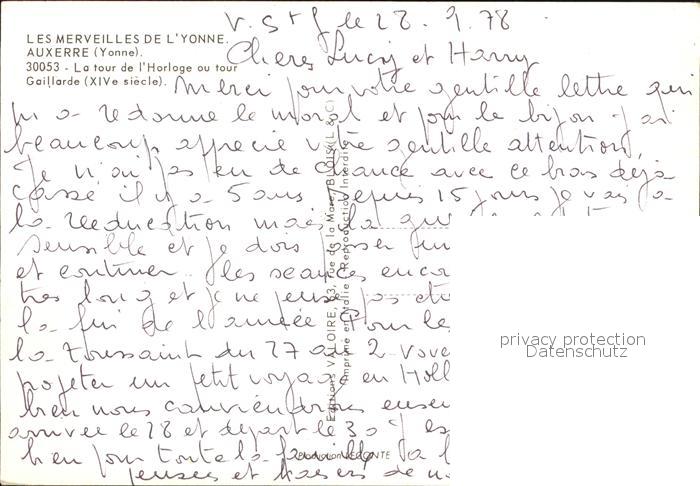 LES MERVEILLES DE L'YONNE.
AUXERRE (Yonne).
30053 - La tour de l'Horloge ou tour
Gaillarde (XIVe siècle).
V. St J le 28. 9. 78
Chères Lucy et Harry
Merci pour votre gentille lettre qui
m'a redonné le moral et pour le bijou j'ai
beaucoup apprécié votre gentille attention,
Je n'ai pas eu de chance avec ce bras déjà
cassé il y a 5 ans. Depuis 15 jours je vais à
la rééducation mais la
sensible et je dois passer
et continuer les séances
très long et je ne pense pas
la fin de l'année. Pour
la Toussaint du 27 au 2
projeter un petit voyage en
bien nous conviendrons
arrivée le 28 et départ le 30
bien pour toute la famille
pensées et baisers de
Editions VALOIRE, rue de la Mare, BLOIS (L. & C.)
Imprimé en Italie - Reproduction Interdite
privacy protection
Datenschutz